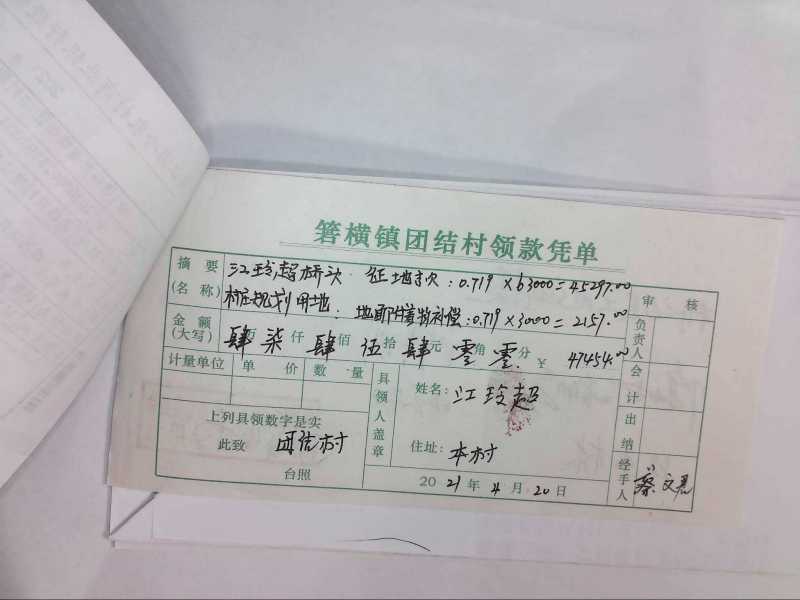 箬横镇团结村领款凭单
摘要(名称)
江玲超桥头 征地款:0.719×63000=45297.00
村庄规划用地: 地面附着物补偿:0.719×3000=2157.00
审核
金额(大写) 肆万柒仟肆佰伍拾肆元零角零分 ¥ 47454.00
负责人
计量单位 单价 数量
具领人盖章
姓名: 江玲超
会计
上列具领数字是实
此致 团结村
台照
住址: 本村
出纳
2021年4月20日
经手人